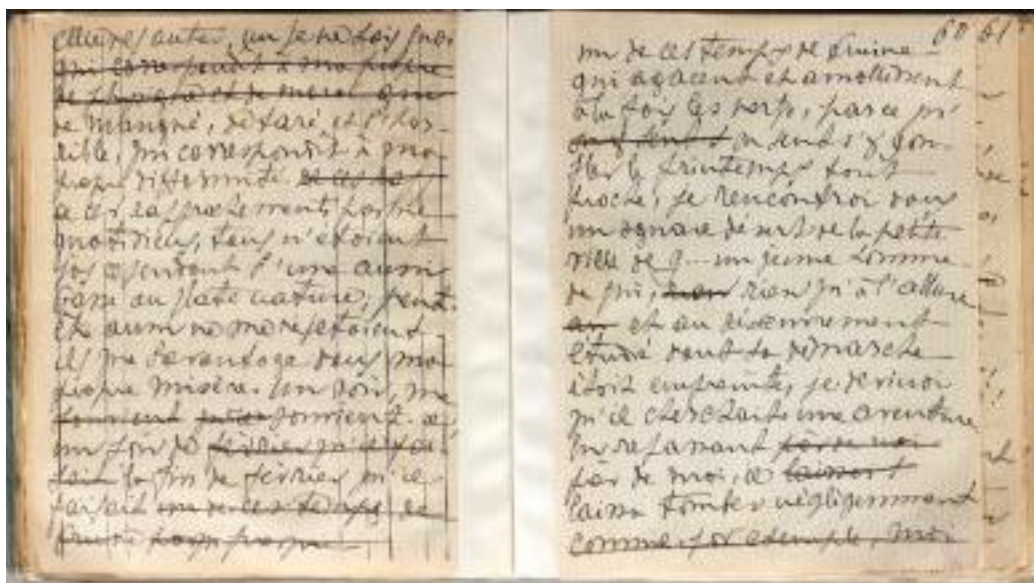 qui correspondît à ma propre
de manqué, de taré, et d'hor-
rible, qui correspondît à ma
propre difformité.
à ces rapprochements
quotidiens, tous n'étaient
pas cependant d'une aussi
basse ou plate nature, peut-
être aussi ne me rejetaient
ils que davantage dans ma
propre misère. Un soir, me
souvient
la fin de février qu'il
faisait un de ces temps de
60 61
un de ces temps de bruine
qui agacent et amollissent
à la fois les nerfs, parce qu'
on sent s'y gon-
fler le printemps tout
proche, je rencontrai dans
un square désert de la petite
ville de Q... un jeune homme
de qui, rien qu'à l'allure
et au désœuvrement
étudié dont sa démarche
était empreinte, je devinai
qu'il cherchait une aventure
En repassant
près de moi, il
laissa tomber négligemment
comme par exemple, moi